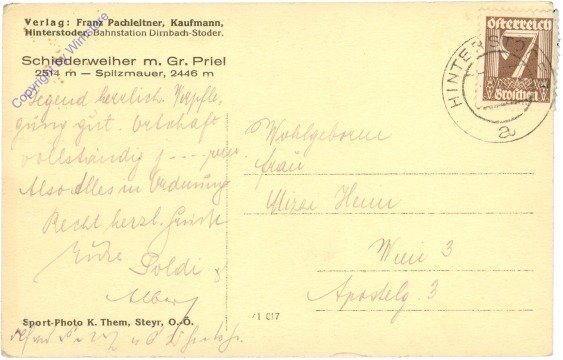 Verlag: Franz Pachleitner, Kaufmann,
Hinterstoder. Bahnstation Dirnbach-Stoder.
Schiederweiher m. Gr. Priel
2514 m — Spitzmauer, 2446 m
Copyright by Wimpare
Gegend herrlich. Verpfle-
gung gut. Ortschaft
vollständig j---rein.
Also Alles in Ordnung.
Recht herzl. Grüße
Eure
Poldi &
Albert
Sport-Photo K. Them, Steyr, O.-Ö.
Österreich
7
Groschen
HINTERS
a
Wohlgeboren
Frau
Henn
Wien 3
Apostelg. 3
41 017